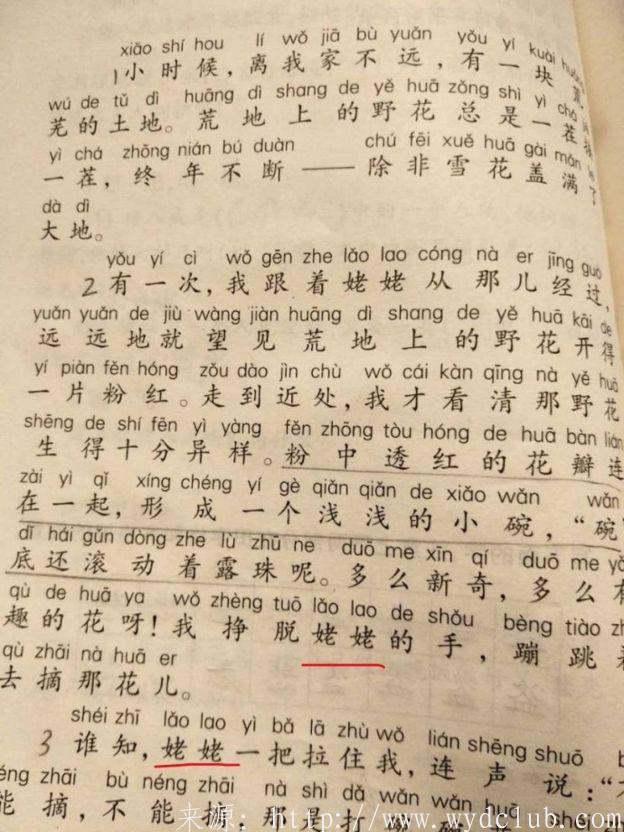 xiǎo shí hou lí wǒ jiā bù yuǎn yǒu yí kuài
1小时候，离我家不远，有一块荒
wú de tǔ dì huāng dì shang de yě huā zǒng shì yì chá
芜的土地。荒地上的野花总是一茬接
yì chá zhōng nián bú duàn chú fēi xuě huā gài mǎn le
一茬，终年不断——除非雪花盖满了
dà dì
大地。
yǒu yí cì wǒ gēn zhe lǎo lao cóng nà er jīng guò
2有一次，我跟着姥姥从那儿经过，
yuǎn yuǎn de jiù wàng jiàn huāng dì shang de yě huā kāi de
远远地就望见荒地上的野花开得
yí piàn fěn hóng zǒu dào jìn chù wǒ cái kàn qīng nà yě huā
一片粉红。走到近处，我才看清那野花
shēng de shí fēn yì yàng fěn zhōng tòu hóng de huā bàn lián
生得十分异样。粉中透红的花瓣连
zài yì qǐ xíng chéng yí gè qiǎn qiǎn de xiǎo wǎn wǎn
在一起，形成一个浅浅的小碗，“碗”
dǐ hái gǔn dòng zhe lù zhū ne duō me xīn qí duō me
底还滚动着露珠呢。多么新奇，多么有
qù de huā ya wǒ zhèng tuō lǎo lao de shǒu bèng tiào
趣的花呀！我挣脱姥姥的手，蹦跳着
qù zhāi nà huā er
去摘那花儿。
shéi zhī lǎo lao yì bǎ lā zhù wǒ lián shēng shuō
3谁知，姥姥一把拉住我，连声说：“
néng zhāi bù néng zhāi nà shì dǎ wǎn wǎn huā
能摘，不能摘，那是打
来源：http://www.wydclub.com